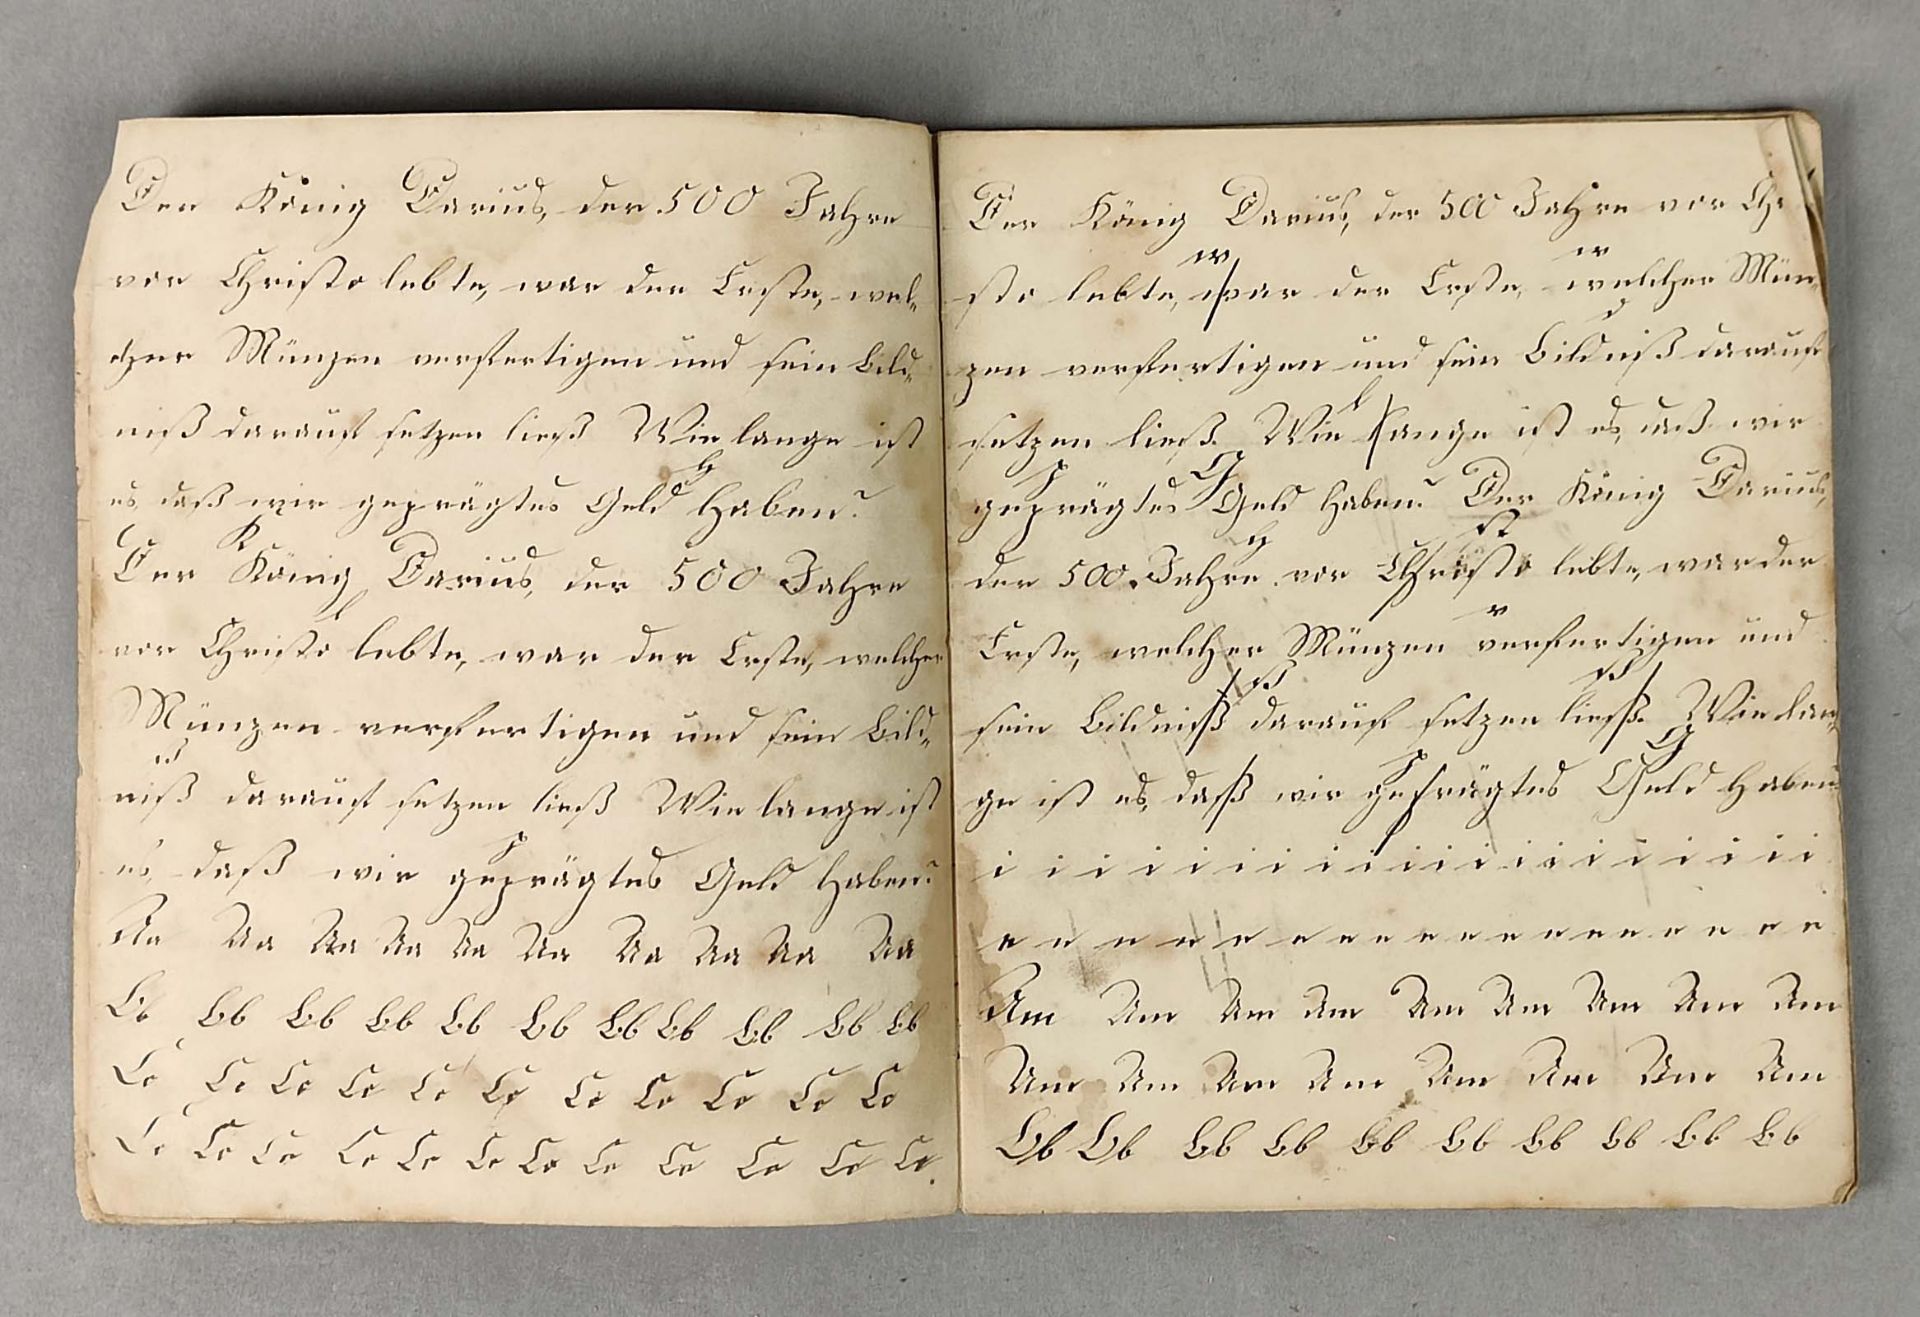 Der König Darius, der 500 Jahre
vor Christo lebte, war der Erste, wel-
cher Münzen verfertigen und sein Bild-
niß darauf setzen ließ Wie lange ist
h
es, daß wir geprägtes Geld haben?
K
Der König Darius, der 500 Jahre
l
vor Christo lebte, war der Erste, welcher
Münzen verfertigen und sein Bild-
niß darauf setzen ließ Wie lange ist
p
es, daß wir geprägtes Geld haben?
Aa Aa Aa Aa Aa Aa Aa Aa Aa Aa
Bb Bb Bb Bb Bb Bb Bb Bb Bb Bb Bb
Cc Cc Cc Cc Cc Cc Cc Cc Cc Cc Cc
Cc Cc Cc Cc Cc Cc Cc Cc Cc Cc Cc Cc
Der König Darius, der 500 Jahre vor Chri
w w
sto lebte, war der Erste, welcher Mün-
zen verfertigen und sein Bildniß darauf
l
setzen ließ. Wie lange ist es, daß wir
p G
geprägtes Geld haben? Der König Darius,
h st
der 500 Jahre vor Christo lebte, war der
v
Erste, welcher Münzen verfertigen und
ß ß
sein Bildniß darauf setzen ließ. Wie lan-
p G
ge ist es, daß wir geprägtes Geld haben
i i i i i i i i i i i i i i i i i i i
e e e e e e e e e e e e e e e e e e e
Am Am Am Am Am Am Am Am Am
Am Am Am Am Am Am Am Am
Bb Bb Bb Bb Bb Bb Bb Bb Bb Bb